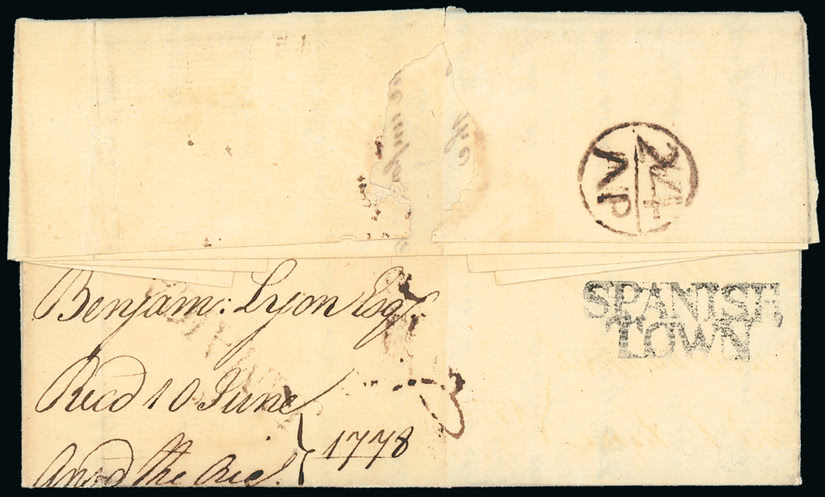 24
AP
SPANISH
TOWN
Benjam: Lyon Esqr
Recd 10 June
Ansd the
1778